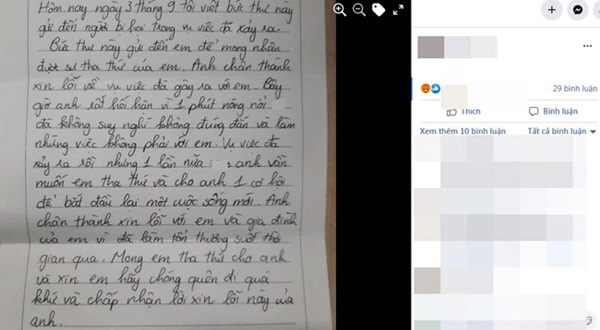 Hôm nay ngày 3 tháng 9 tôi viết bức thư này
gửi đến người bị hại trong vụ việc đã xảy ra.
Bức thư này gửi đến em để mong nhân
được sự tha thứ của em. Anh chân thành
xin lỗi về vụ việc đã gây ra với em. Bây
giờ anh rất hối hận vì 1 phút nóng nải
đã không suy nghĩ không đúng đắn và làm
những việc không phải với em. Vụ việc đã
xảy ra rồi nhưng 1 lần nữa anh vẫn
muốn em tha thứ và cho anh 1 cơ hội
để bắt đầu lại một cuộc sống mới. Anh
chân thành xin lỗi với em và gia đình
của em vì đã làm tổn thương suốt thời
gian qua. Mong em tha thứ cho anh
và xin em hãy chóng quên đi quá
khứ và chấp nhận lời xin lỗi này của
anh.
29 bình luận
Thích
Bình luận
Xem thêm 10 bình luận
Tất cả bình luận